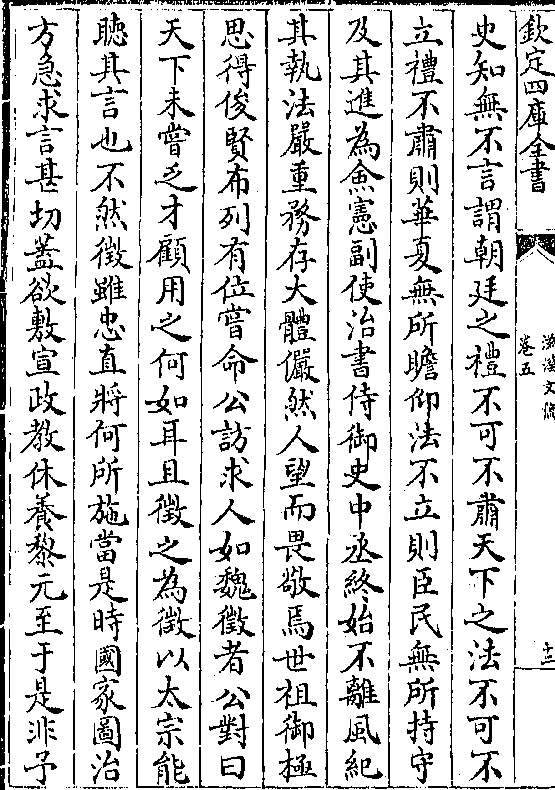 欽定四庫全書
卷五
史知無不言謂朝廷之禮不可不肅天下之法不可不
立禮不肅則華夏無所瞻仰法不立則臣民無所持守
及其進為僉憲副使治書侍御史中丞終始不離風紀
其執法嚴重務存大體儼然人望而畏敬焉世祖御極
思得俊賢布列有位嘗命公訪求人如魏徵者公對曰
天下未嘗乏才顧用之何如耳且徵之為徵以太宗能
聽其言也不然徵雖忠直將何所施當是時國家圖治
方急求言甚切蓋欲敷宣政教休養黎元至于是非予